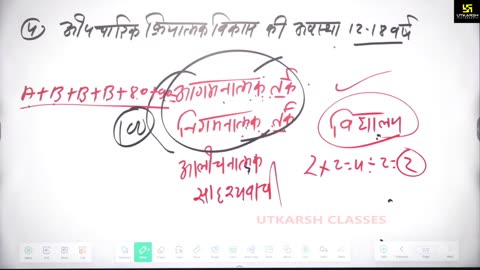 (4) औपचारिक क्रियात्मक विकास की अवस्था 12-18 वर्ष
A+B+B+B+80+90=
आगमनात्मक तर्क
100
निगमनात्मक तर्क
विद्यालय
आलोचनात्मक
2+2=4÷2=2
सादृश्यवाची
UTKARSH CLASSES
UTKARSH